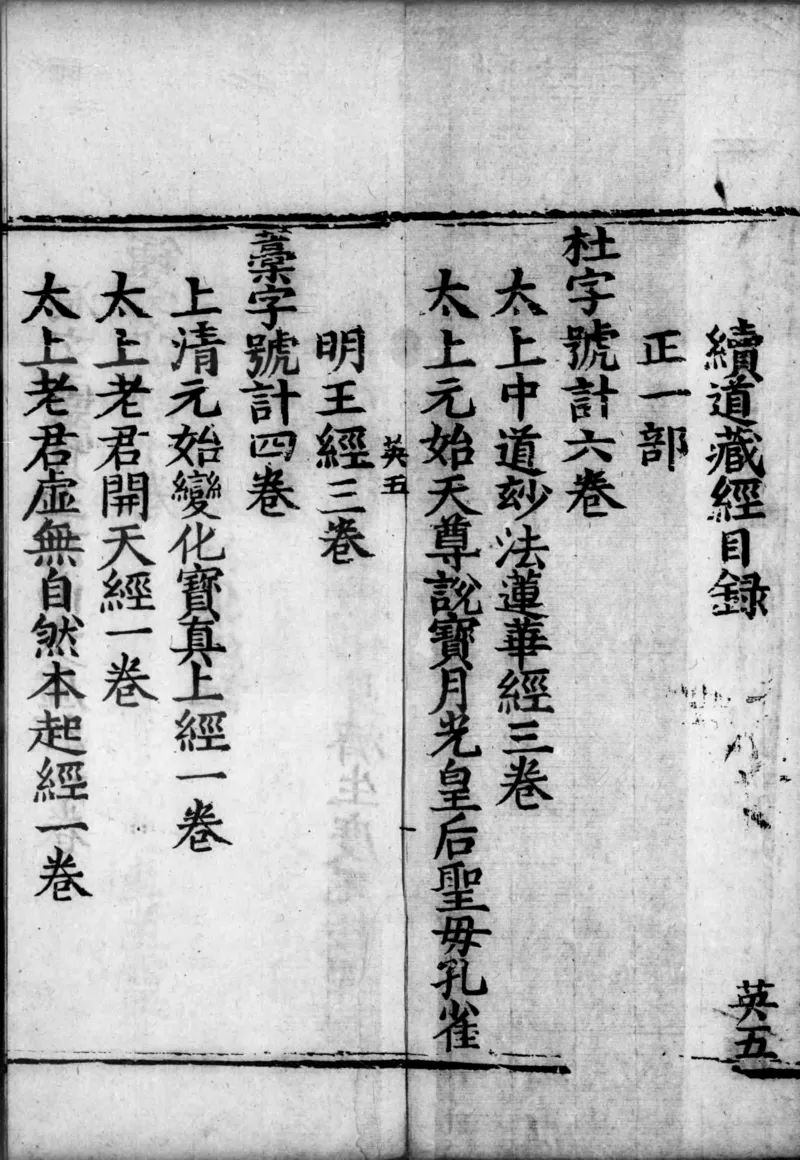 續道藏經目録
英五
正一部
杜字號計六卷
太上中道玅法蓮華經三卷
太上元始天尊說寶月光皇后聖毋孔雀
英五
明王經三卷
藁字號計四卷
上清元始變化寶真上經一卷
太上老君開天經一卷
太上老君虛無自然本起經一卷